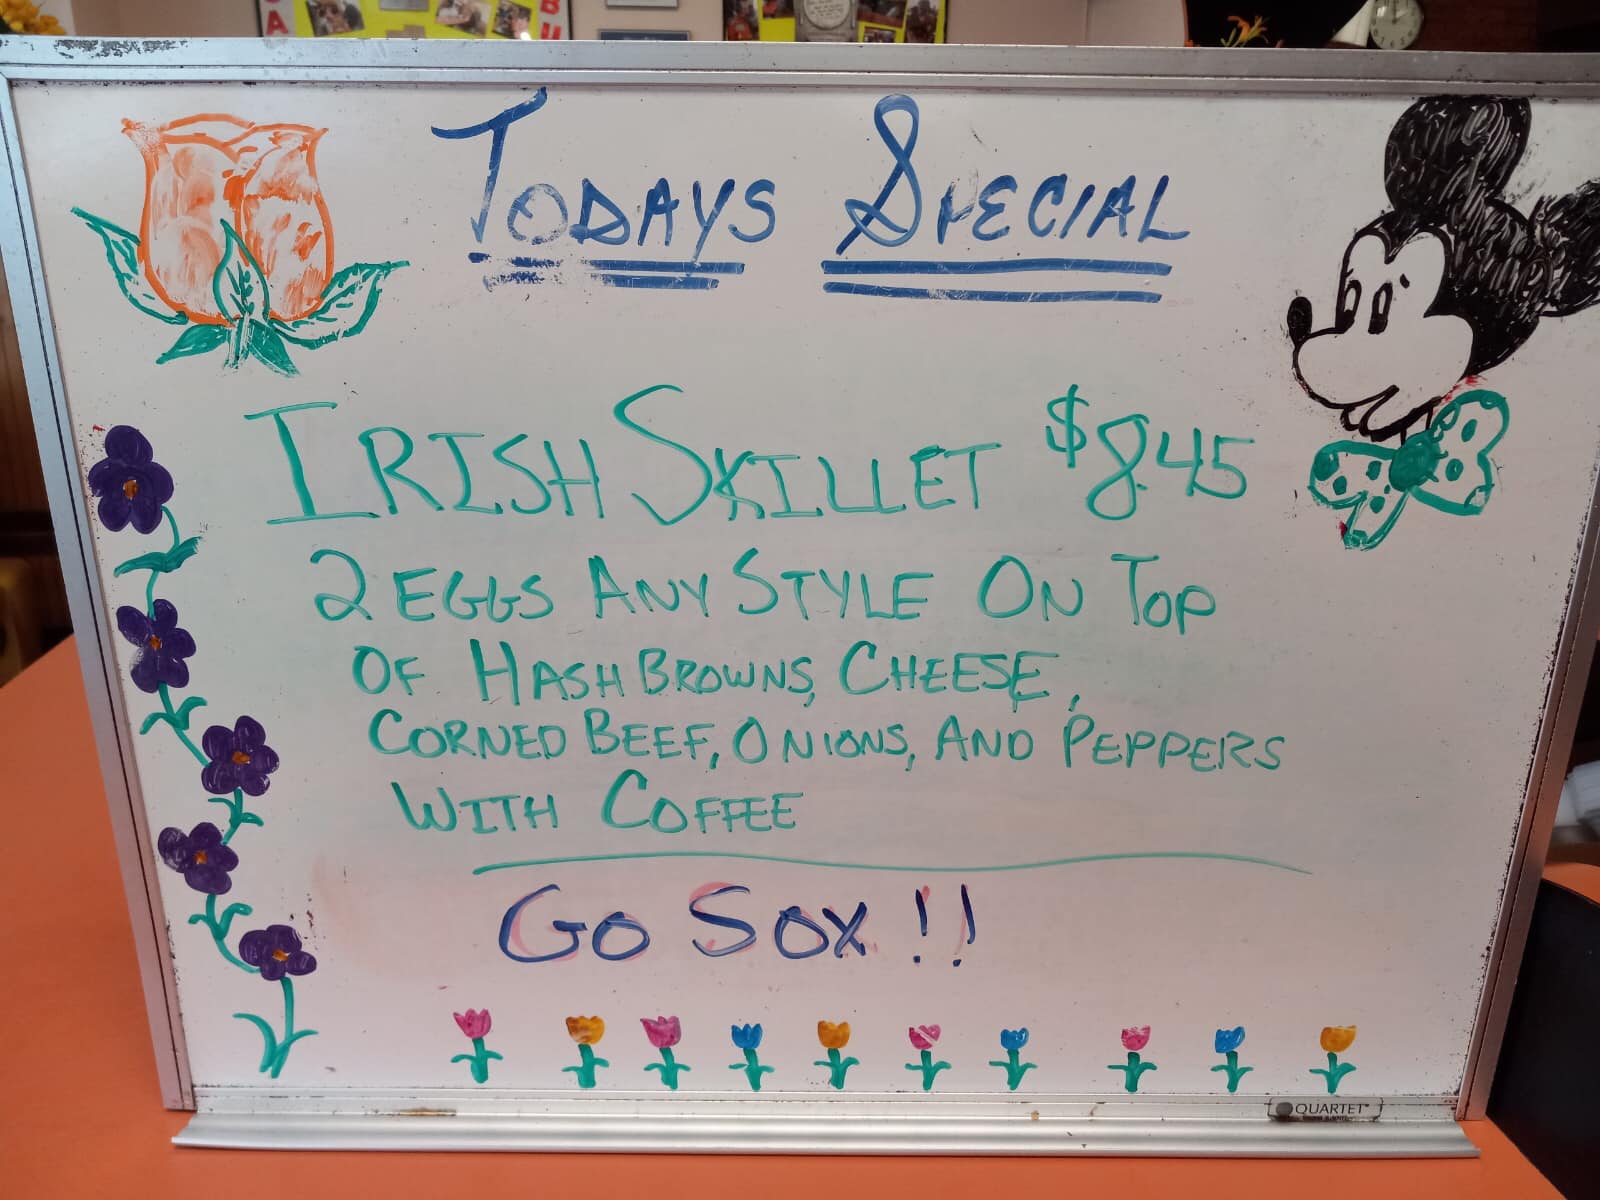 TODAYS SPECIAL
IRISH SKILLET $8.45
2 EGGS ANY STYLE ON TOP
OF HASH BROWNS, CHEESE,
CORNED BEEF, ONIONS, AND PEPPERS
WITH COFFEE
GO SOX!!
QUARTET